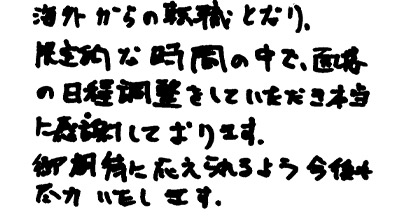 海外からの転職となり、
限定的な時間の中で、面接
の日程調整をしていただき本当
に感謝しております。
御期待に応えられるよう今後も
尽力いたします。